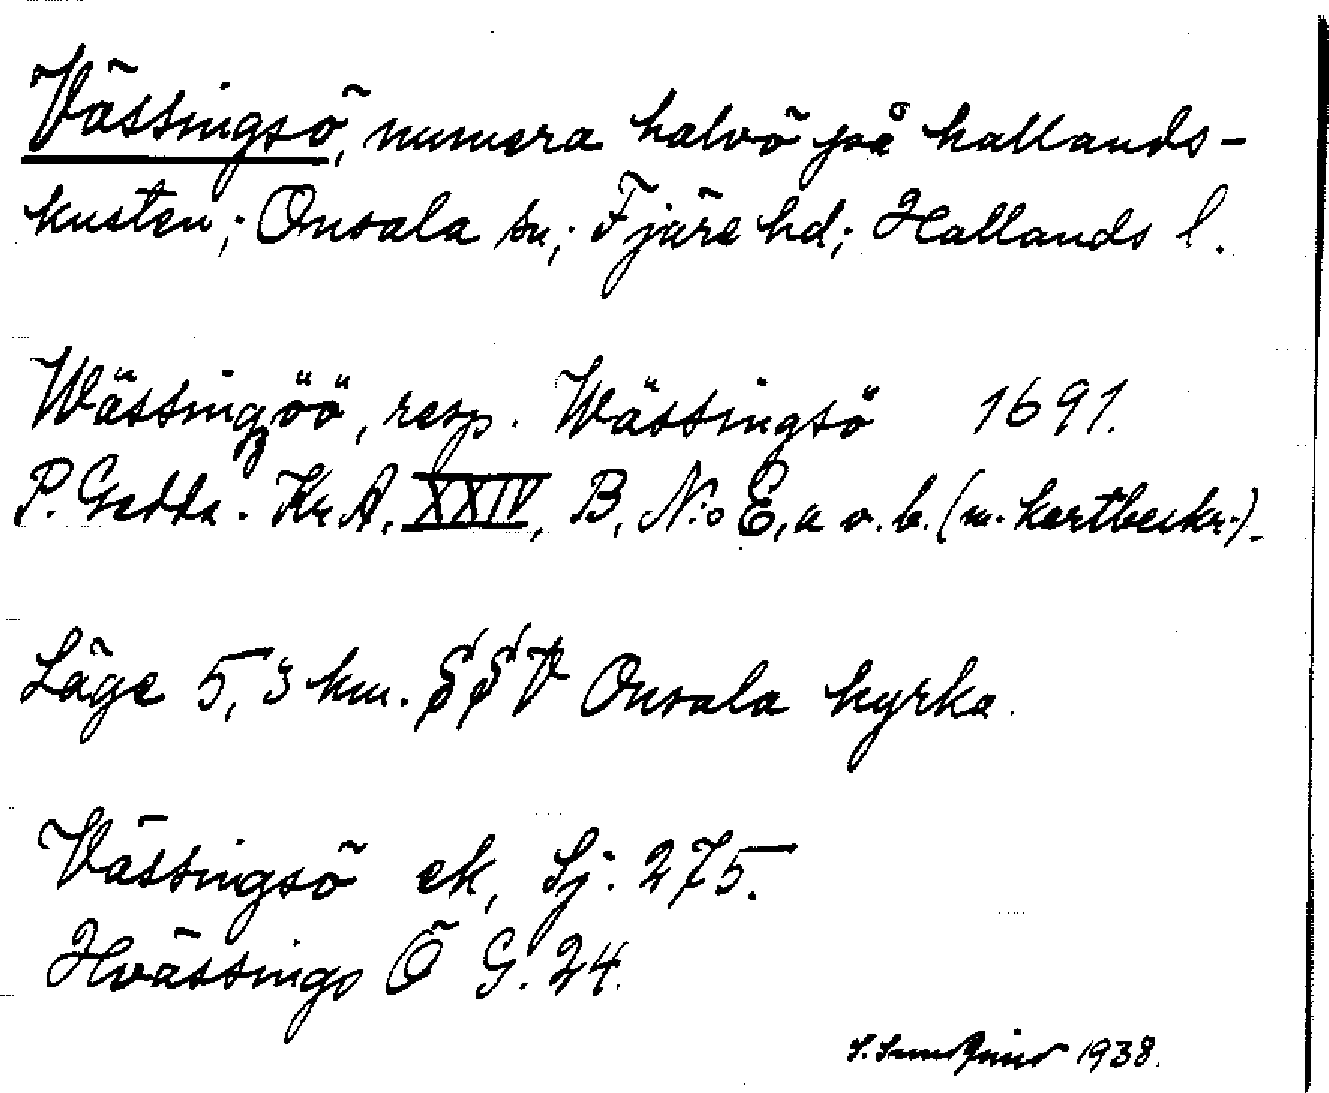 Vässingsö, numera halvö på hallands-
kusten; Onsala sn; Fjäre hd; Hallands l.
Wässingzöö, resp. Wässingsö 1691.
P. Gedda. Kr. A. XXIV, B, N:o E, a o. b. (m. kartbeskr.).
Läge 5,3 km. SSV Onsala kyrka.
Vässingsö ek, Sj. 275.
Hvässings Ö G. 24.
1938.